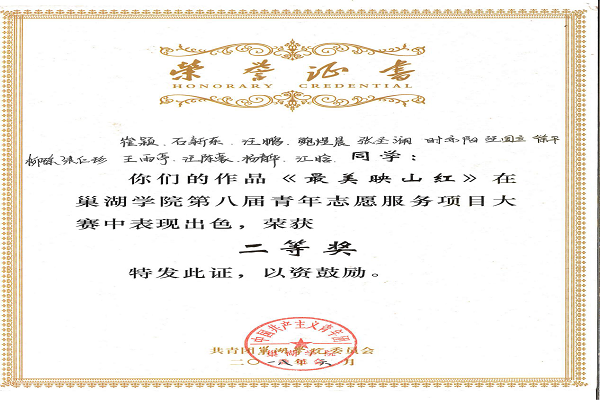 荣誉证书
HONORARY CREDENTIAL
徐颖、石新东、汪鹏、鲍煜晨、张圣湖、时宗阳
王雨亭、汪陈豪、杨静、江晗 同学：
你们的作品《最美映山红》在
巢湖学院第八届青年志愿服务项目大
赛中表现出色，荣获
二等奖
特发此证，以资鼓励。
中国共产主义青年团
共青团巢湖学院委员会
二〇一八年六月